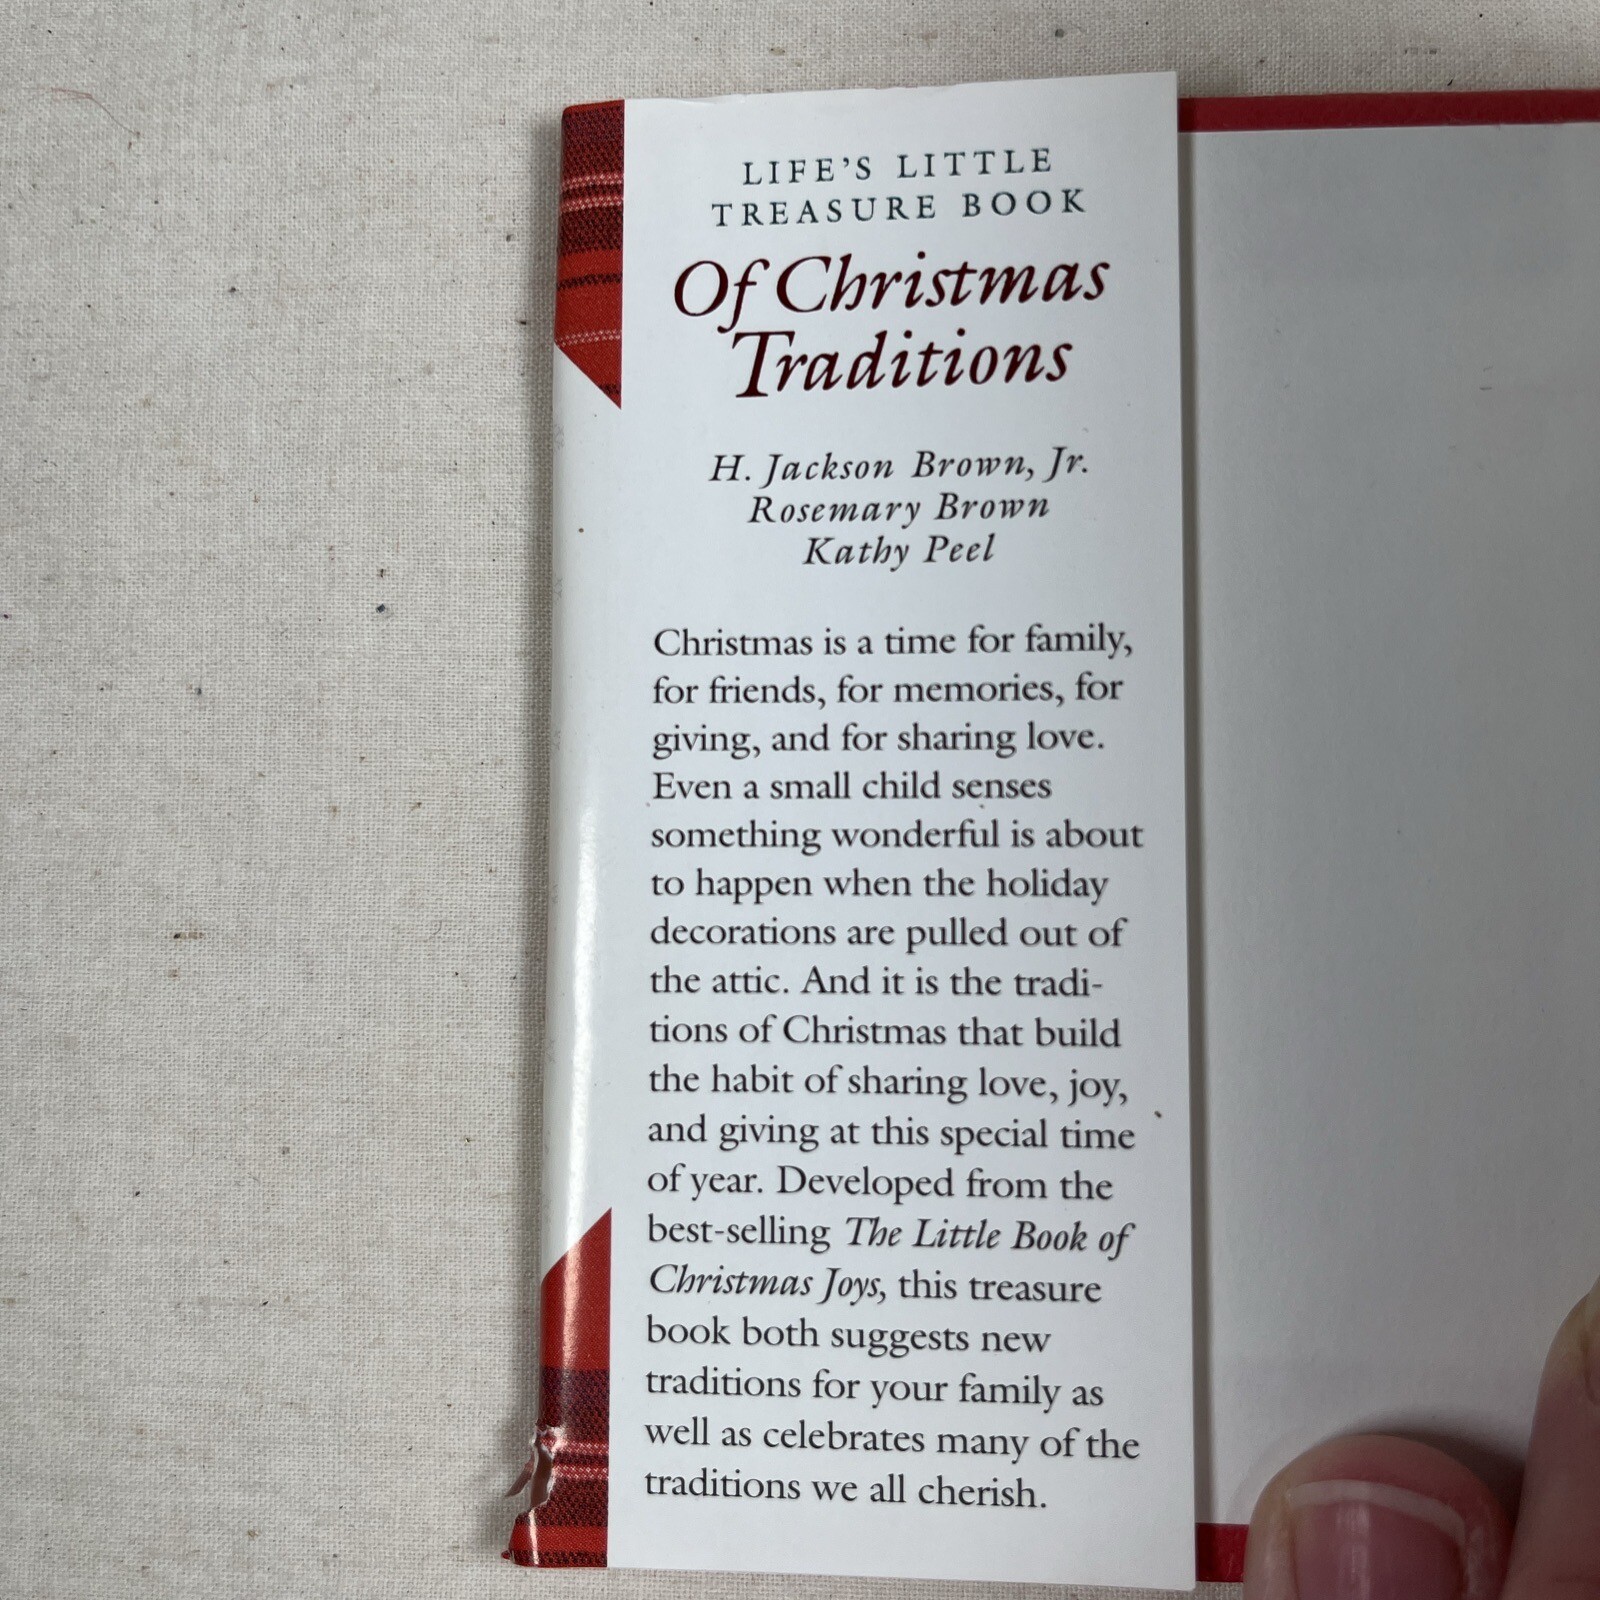 LIFE'S LITTLE
TREASURE BOOK
Of Christmas
Traditions
H. Jackson Brown, Jr.
Rosemary Brown
Kathy Peel
Christmas is a time for family,
for friends, for memories, for
giving, and for sharing love.
Even a small child senses
something wonderful is about
to happen when the holiday
decorations are pulled out of
the attic. And it is the tradi-
tions of Christmas that build
the habit of sharing love, joy,
and giving at this special time
of year. Developed from the
best-selling The Little Book of
Christmas Joys, this treasure
book both suggests new
traditions for your family as
well as celebrates many of the
traditions we all cherish.